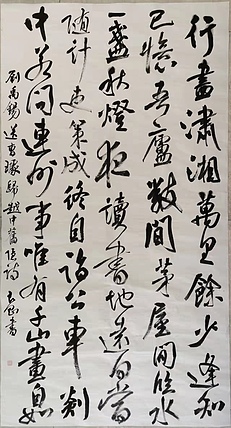 行盡瀟湘萬里餘少逢知
己憶吾廬數間茅屋閒臨水
一盞秋燈夜讀書地遠何當
隨計吏策成終自詣公車剡
中若問連州事唯有千山畫不如
劉禹錫送曹璩歸越中舊隱詩 書